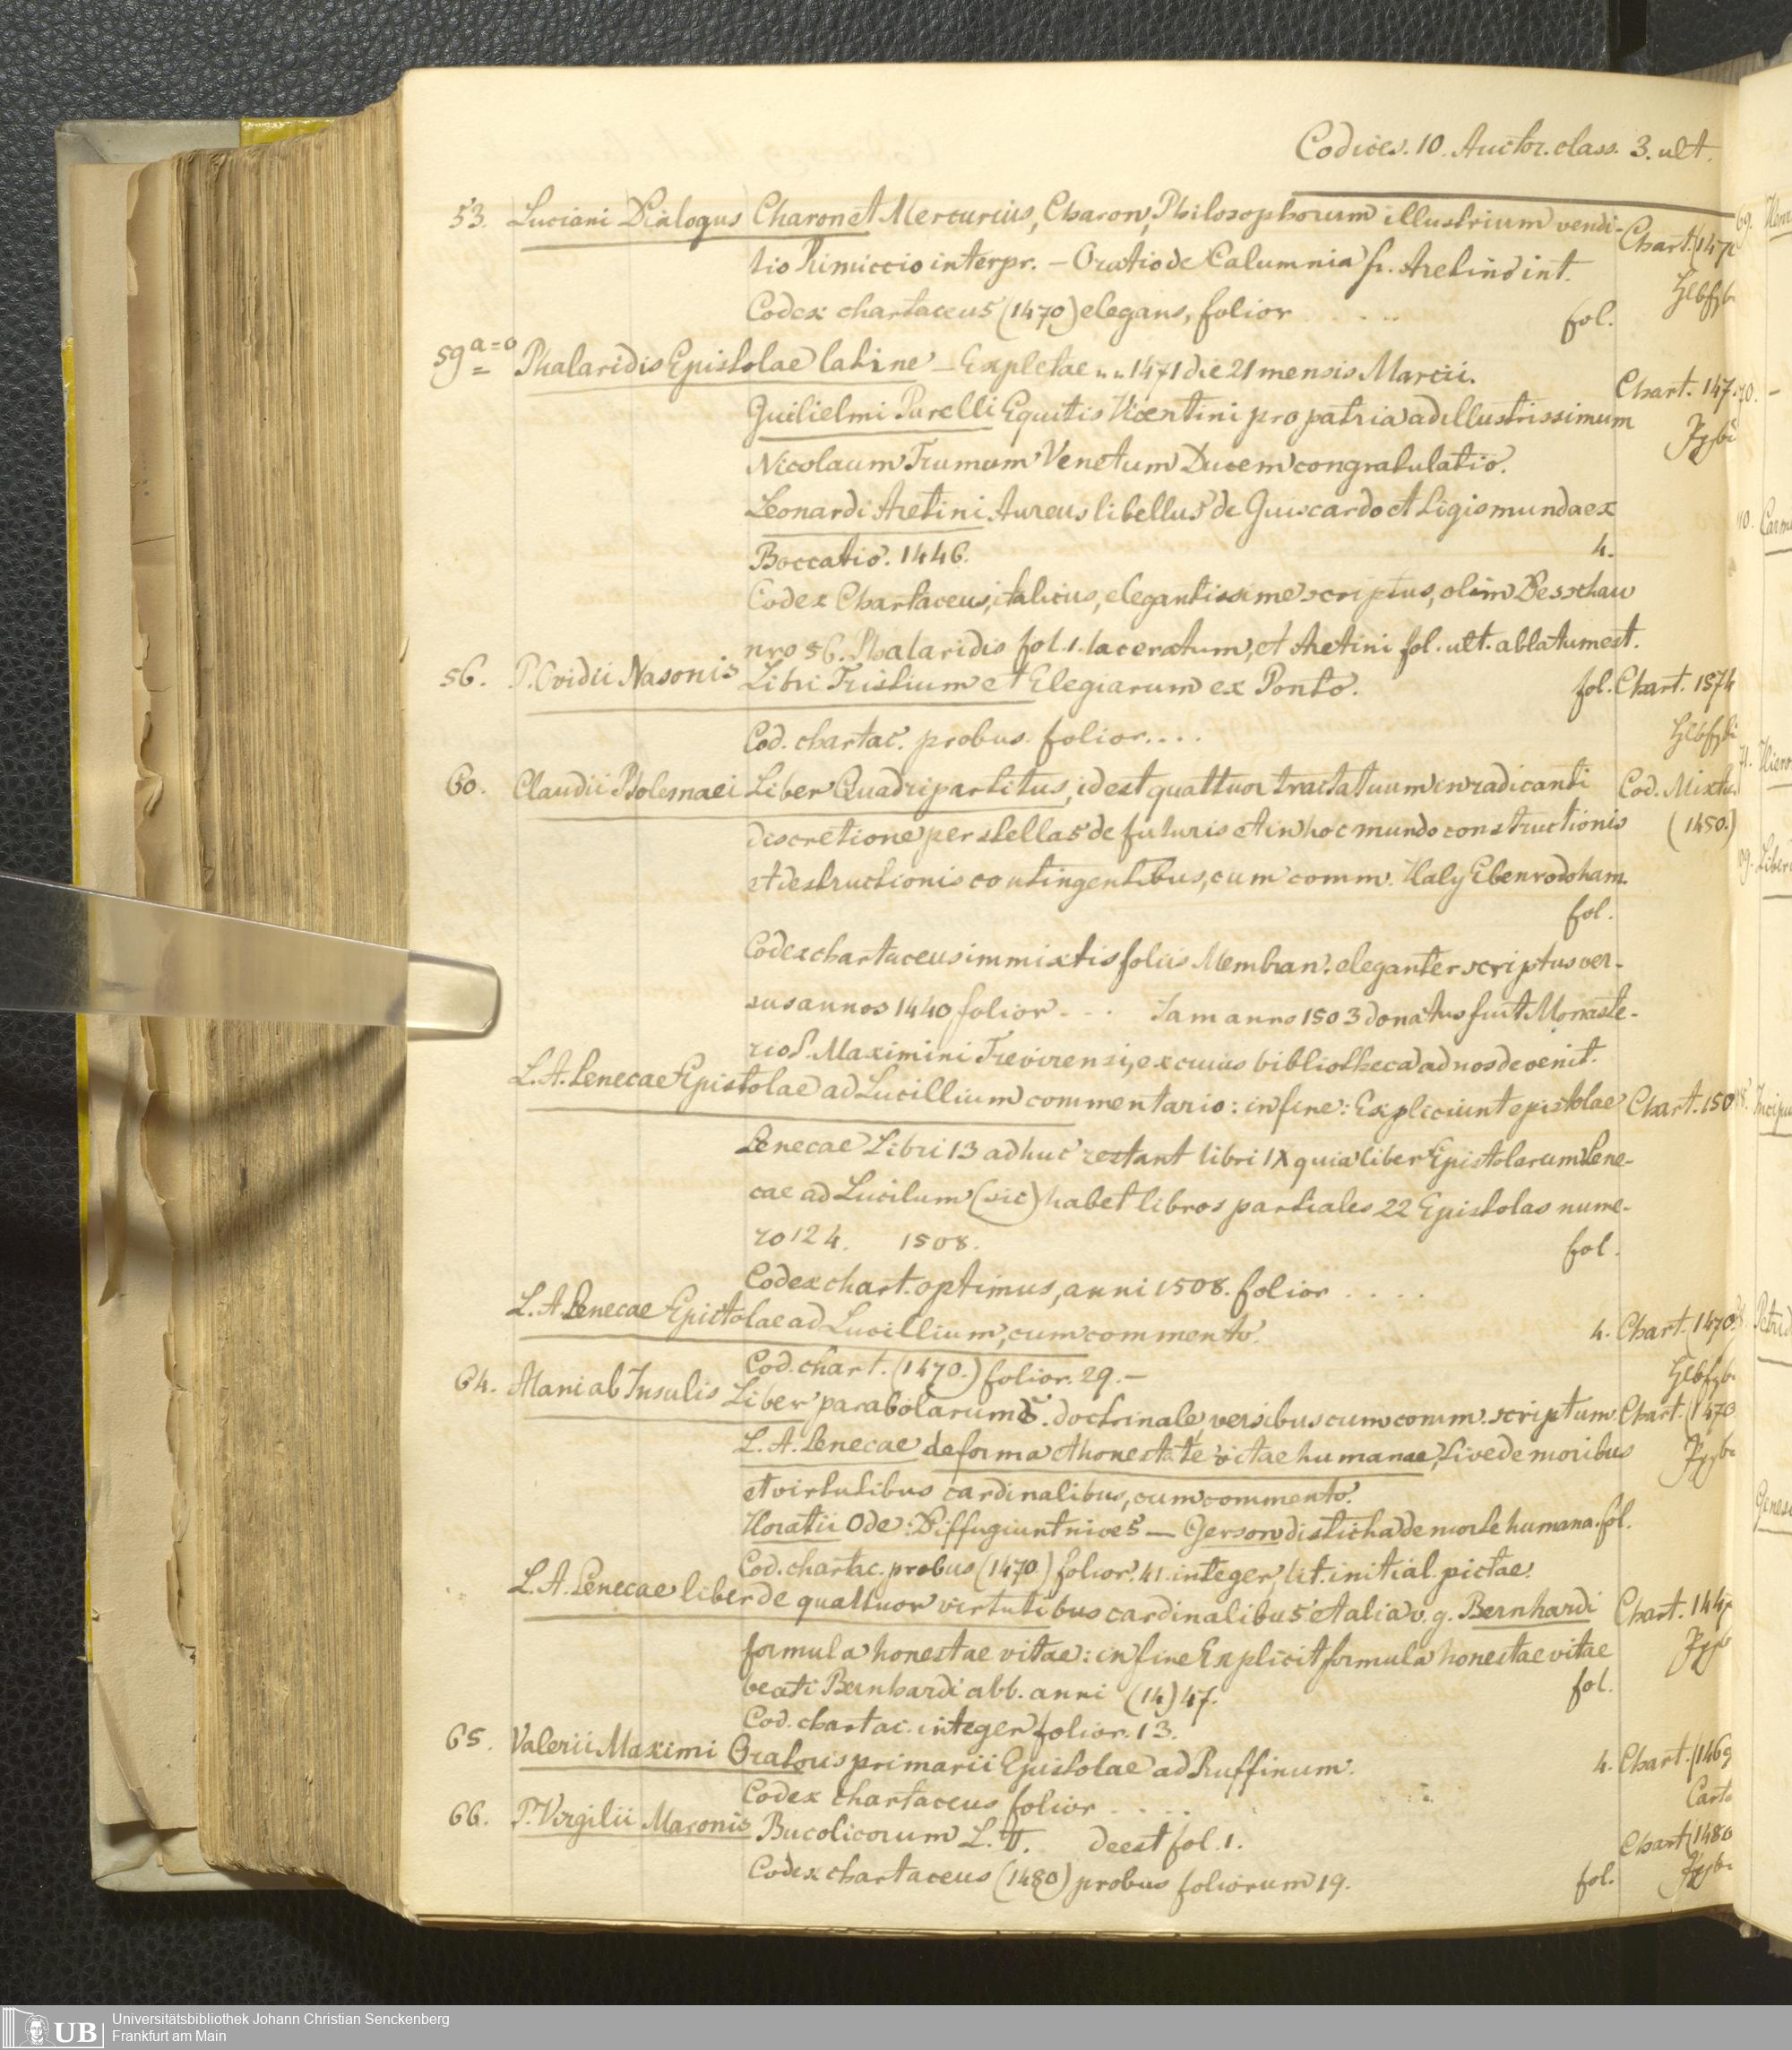 Codices. 10. Auctor. class. 3. ult.
53. Luciani Dialogus Charon et Mercurius, Charon, Philosophorum illustrium vendi-
tio Rimiccio interpr. – Oratio de Calumnia fr. Aretino int.
Chart. (1470
Codex chartaceus (1470) elegans, folior . . . . fol.
59 a=o Phalaridis Epistolae latine – Expletae „ „ 1471 die 21 mensis Marcii.
Chart. 147
Guilielmi Purelli Equitis Vicentini pro patria ad illustrissimum
Nicolaum Trumum Venetum Ducem congratulatio.
Leonardi Aretini Aureus libellus de Guiscardo et Sigismunda ex
Boccatio. 1446. 4.
Codex Chartaceus, italicus, elegantissime scriptus, olim Desschau
nro 56. Phalaridis fol. 1. laceratum, et Aretini fol. ult. ablatum est.
56. P. Ovidii Nasonis Libri Tristium et Elegiarum ex Ponto. fol. Chart. 1574
Cod. chartac. probus. folior. . . .
60. Claudii Ptolemaei Liber Quadripartitus, id est quattuor tractatuum in radicanti Cod. Mixtu
discretione per stellas de futuris et in hoc mundo constructionis (1450.)
et destructionis contingentibus, cum comm. Haly Ebenrodoham.
fol.
Codex chartaceus immixtis foliis Membran. eleganter scriptus ver-
sus annos 1440 folior - - - Jam anno 1503 donatus fuit Monaste-
rio S. Maximini Trevirensi, ex cuius bibliotheca ad nos devenit.
L. A. Senecae Epistolae ad Lucillium commentario: in fine: Expliciunt epistolae Chart. 150
Senecae Libri 13 adhuc restant libri IX quia liber Epistolarum Sene-
cae ad Lucilum (sic) habet libros partiales 22 Epistolas nume-
ro 124. 1508. fol.
Codex chart. optimus, anni 1508. folior . . . .
L. A. Senecae Epistolae ad Lucillium, cum commento. 4. Chart. 1470
Cod. chart. (1470.) folior. 29. –
64. Alani ab Insulis Liber parabolarum s. doctrinale, versibus cum comm. scriptum. Chart. (1470
L. A. Senecae de forma et honestate vitae humanae, sive de moribus
et virtutibus cardinalibus, cum commento.
Horatii Ode: Diffugiunt nives – Gerson disticha de morte humana. fol.
Cod. chartac. probus (1470.) folior. 41. integer, lit. initial. pictae.
L. A. Senecae liber de quattuor virtutibus cardinalibus et alia v. g. Bernhardi Chart. 144
formula honestae vitae: in fine Explicit formula honestae vitae
beati Bernhardi abb. anni (14)47. fol.
Cod. chartac. integer folior. 13.
65. Valerii Maximi Oratoris primarii Epistolae ad Ruffinum. 4. Chart. (1469
Codex chartaceus folior - . . . Cart
66. P. Virgilii Maronis Bucolicorum L. deest fol. 1.
Chart (1480
Codex chartaceus (1480) probus foliorum 19. fol.
UB
Universitätsbibliothek Johann Christian Senckenberg
Frankfurt am Main